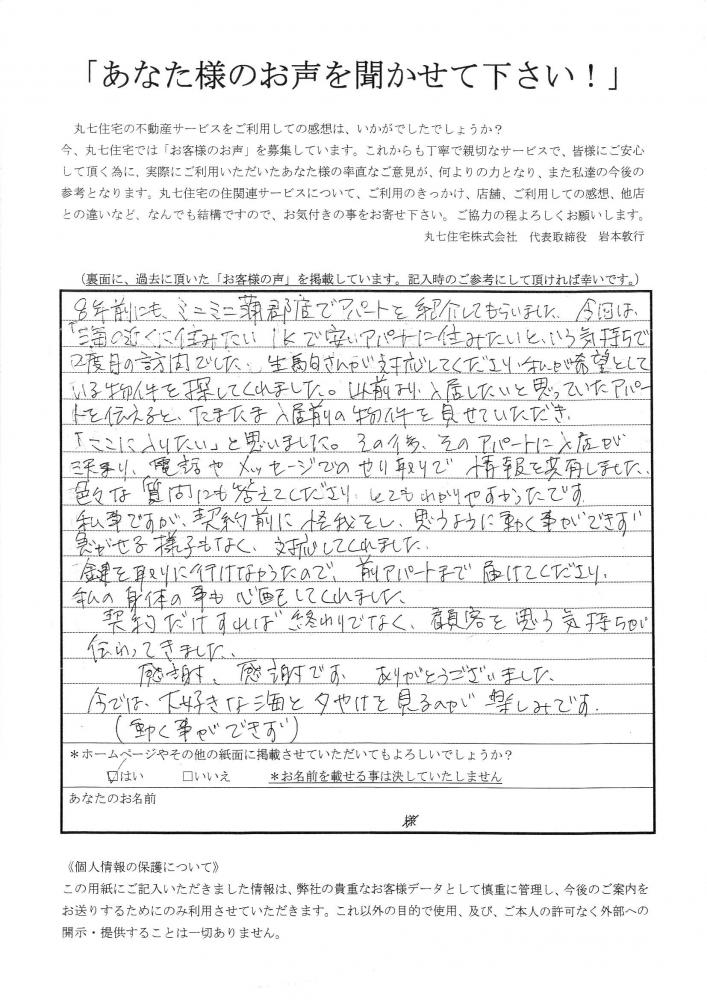 「あなた様のお声を聞かせて下さい！」
丸七住宅の不動産サービスをご利用しての感想は、いかがでしたでしょうか？
今、丸七住宅では「お客様のお声」を募集しています。これからも丁寧で親切なサービスで、皆様にご安心
して頂く為に、実際にご利用いただいたあなた様の率直なご意見が、何よりの力となり、また私達の今後の
参考となります。丸七住宅の住関連サービスについて、ご利用のきっかけ、店舗、ご利用しての感想、他店
との違いなど、なんでも結構ですので、お気付きの事をお寄せ下さい。ご協力の程よろしくお願いします。
丸七住宅株式会社　代表取締役　岩本敦行
（裏面に、過去に頂いた「お客様の声」を掲載しています。記入時のご参考にして頂ければ幸いです。）
8年前にも、ミニミニ蒲郡店でアパートを紹介してもらいました。今回は、
「海の近くに住みたい 1Kで安いアパートに住みたいという気持ちで
2度目の訪問でした。生馬さんが対応してくださり、私が希望として
いる物件を探してくれました。以前より、入居したいと思っていたアパー
トを伝えると、たまたま入居前の物件を見せていただき、
「ここに入りたい」と思いました。その後、そのアパートに入居が
決まり、電話やメッセージでのやり取りで情報を共有しました。
色々な質問にも答えてくださり、とてもわかりやすかったです。
私事ですが、契約前に怪我をし、思うように動く事ができず
急がせる様子もなく、対応してくれました。
鍵を取りに行けなかったので、前アパートまで届けてくださり、
私の身体の事も心配をしてくれました。
契約だけすれば終わりでなく、顧客を思う気持ちが
伝わってきました。
感謝、感謝です。ありがとうございました。
今では、大好きな海と夕やけを見るのが楽しみです。
（動く事ができず）
＊ホームページやその他の紙面に掲載させていただいてもよろしいでしょうか？
☑はい　□いいえ　＊お名前を載せる事は決していたしません
あなたのお名前
様
《個人情報の保護について》
この用紙にご記入いただきました情報は、弊社の貴重なお客様データとして慎重に管理し、今後のご案内を
お送りするためにのみ利用させていただきます。これ以外の目的で使用、及び、ご本人の許可なく外部への
開示・提供することは一切ありません。